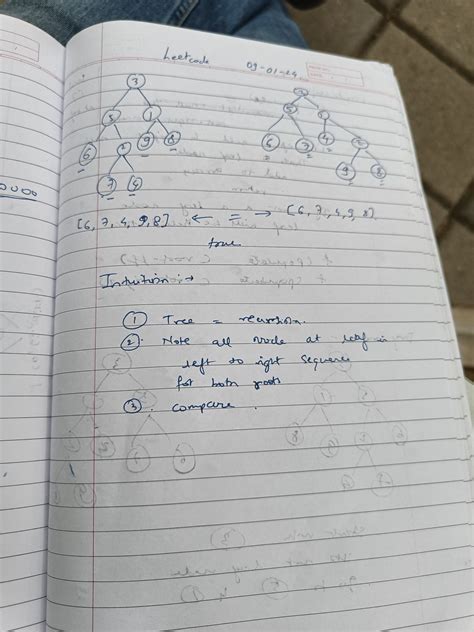 Leetcode 09-01-24
3
5 1
6 2 9 8
7 4
6 7 4
9 8
[6, 7, 4, 9, 8] ← = → [6, 7, 4, 9, 8]
true
Intuition :→
① Tree = recursion.
② Note all Node at leaf in
left to right sequence
for both roots
③ compare.